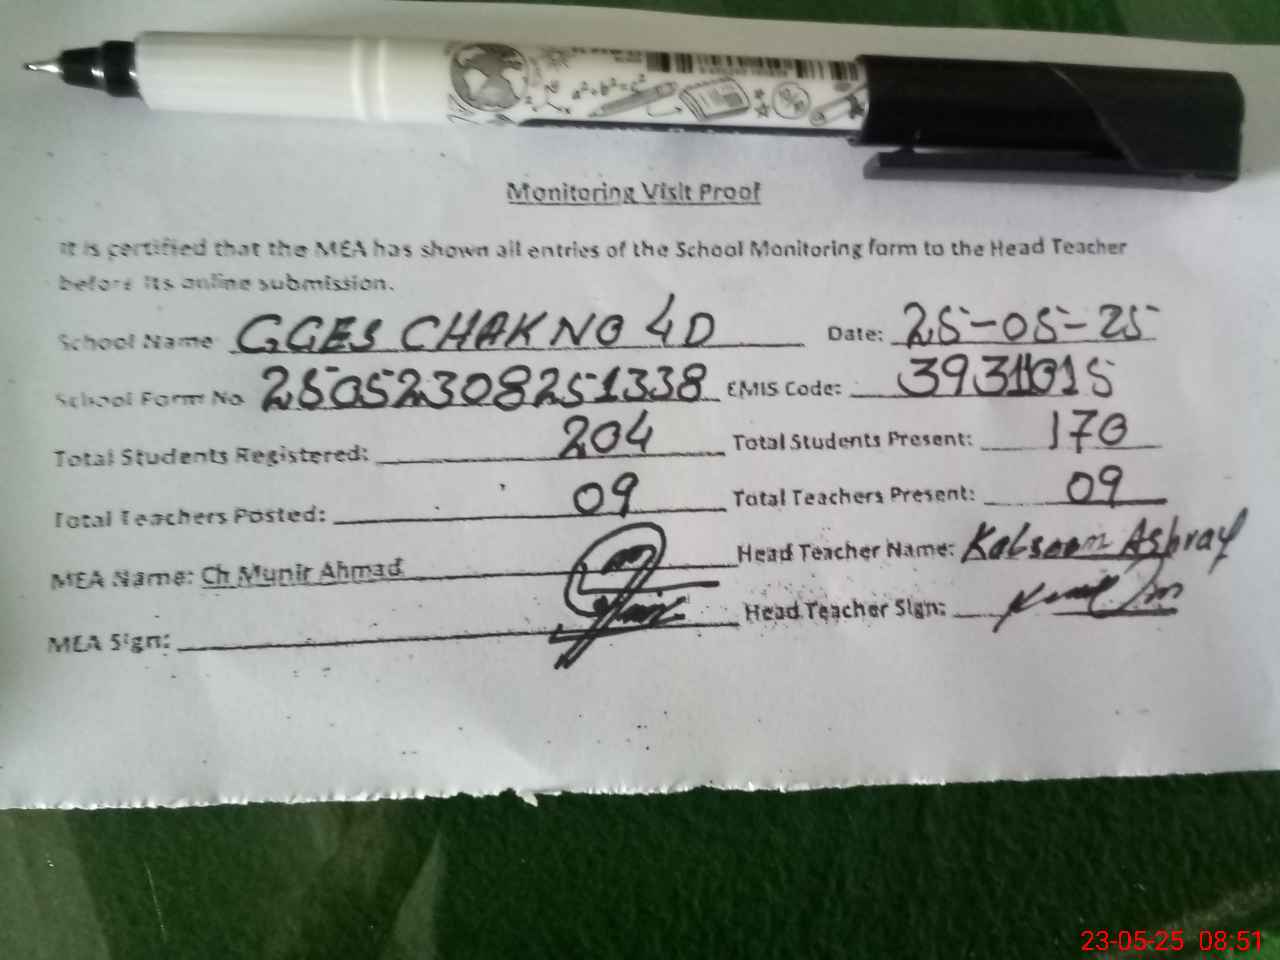 a²+b²=c²
Monitoring Visit Proof
It is certified that the MEA has shown all entries of the School Monitoring form to the Head Teacher
before its online submission.
School Name GGES CHAK NO 4D Date: 25-05-25
School Form No 25052308251338 EMIS Code: 39311015
Total Students Registered: 204 Total Students Present: 170
Total Teachers Posted: 09 Total Teachers Present: 09
MEA Name: Ch Munir Ahmad Head Teacher Name: Kalsoom Ashraf
MEA Sign: Head Teacher Sign:
23-05-25 08:51